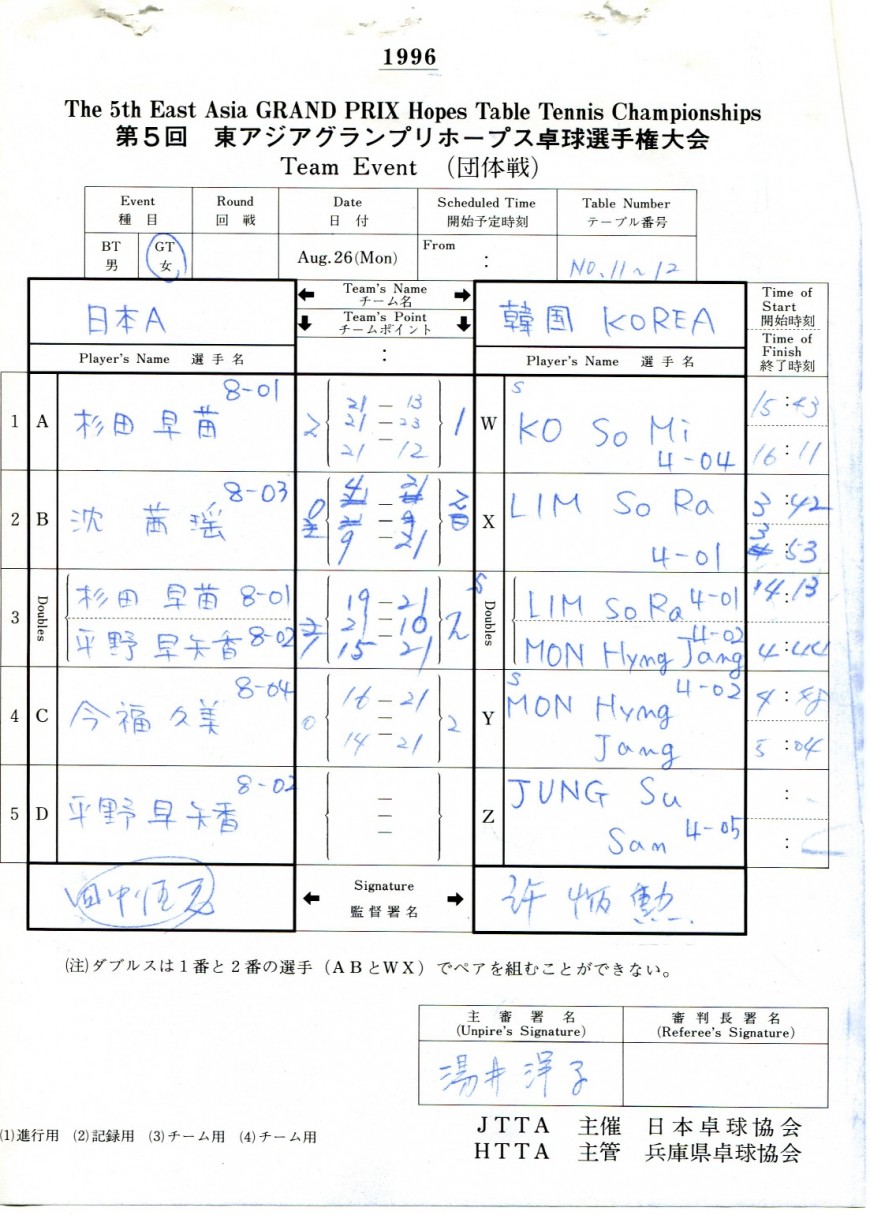 1996
The 5th East Asia GRAND PRIX Hopes Table Tennis Championships
第5回 東アジアグランプリホープス卓球選手権大会
Team Event (団体戦)
Event Round Date Scheduled Time Table Number
種目 回戦 日付 開始予定時刻 テーブル番号
BT GT Aug.26(Mon) From
男 女 : NO.11~12
Team's Name
チーム名
日本A 韓国 KOREA
Team's Point
チームポイント
:
Time of Start
開始時刻
Time of Finish
終了時刻
Player's Name 選手名 Player's Name 選手名
1 A 杉田早苗 8-01
2 21-13 1
21-23
21-12
W S KO So Mi 4-04
15:43
16:11
2 B 沈茜瑶 8-03
0 2
9-21
X LIM So Ra 4-01
3:42
53
3 Doubles 杉田早苗 8-01
平野早矢香 8-02
19-21 2
21-10
15-21
S Doubles LIM So Ra 4-01
MON Hyng Jang 4-02
14:13
4:44
4 C 今福久美 8-04
0 16-21 2
14-21
Y S MON Hyng Jang 4-02
4:58
5:04
5 D 平野早矢香 8-02
Z JUNG Su San 4-05
:
:
Signature
監督署名
許炳勲
(注)ダブルスは1番と2番の選手(ABとWX)でペアを組むことができない。
主審署名 審判長署名
(Unpire's Signature) (Referee's Signature)
湯井洋子
JTTA 主催 日本卓球協会
(1)進行用 (2)記録用 (3)チーム用 (4)チーム用
HTTA 主管 兵庫県卓球協会